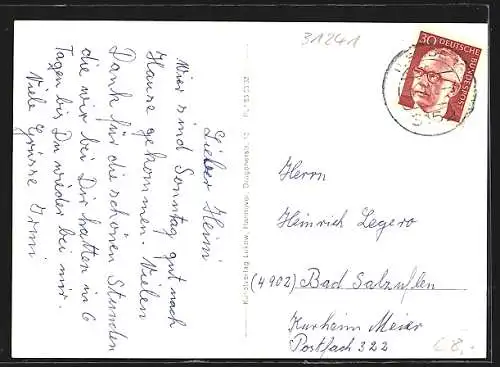 31241
30 DEUTSCHE BUNDESPOST
Lieber Heini
Wir sind Sonntag gut nach
Hause gekommen. Vielen
Dank für die schönen Stunden
die wir bei Dir hatten in 6
Tagen bis Du wieder bei mir.
Viele Grüsse Irmi
Kunstverlag Lukow, Hannover,
Herrn
Heinrich Legero
(4902) Bad Salzuflen
Kurheim Meier
Postfach 322
£8,-